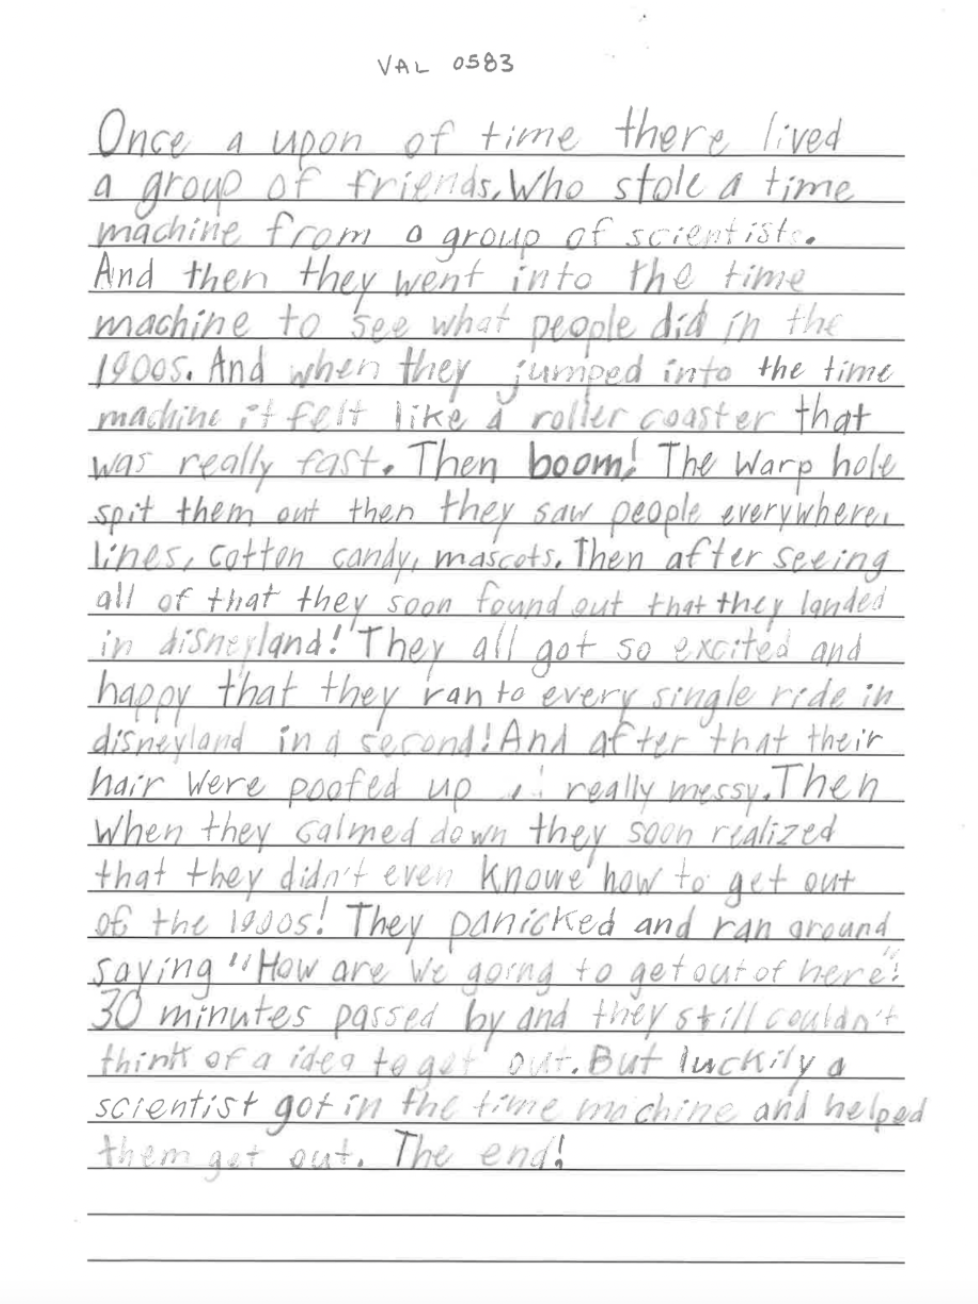 VAL 0583
Once a upon of time there lived
a group of friends. Who stole a time
machine from a group of scientists.
And then they went into the time
machine to see what people did in the
1900s. And when they jumped into the time
machine it felt like a roller coaster that
was really fast. Then boom! The Warp hole
spit them out then they saw people everywhere,
lines, cotton candy, mascots. Then after seeing
all of that they soon found out that they landed
in disneyland! They all got so excited and
happy that they ran to every single ride in
disneyland in a second! And after that their
hair were poofed up really messy. Then
When they calmed down they soon realized
that they didn't even knowe how to get out
of the 1900s! They panicked and ran around
saying "How are we going to get out of here"!
30 minutes passed by and they still couldn't
think of a idea to get out. But luckily a
scientist got in the time machine and helped
them get out. The end!